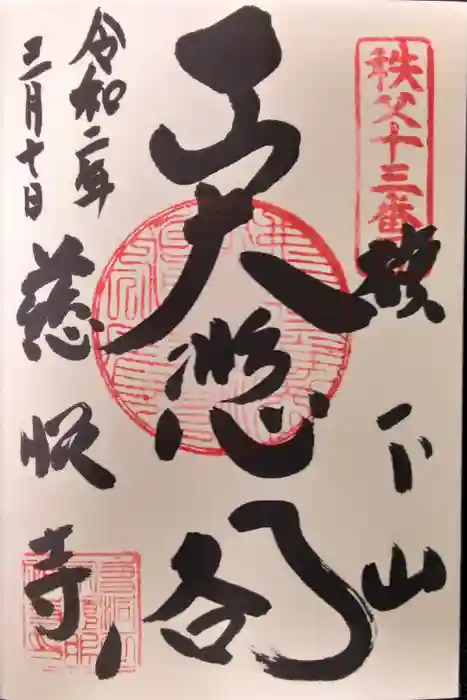 秩父十三番
旗下山
大悲閣
慈眼寺
令和二年
三月十日